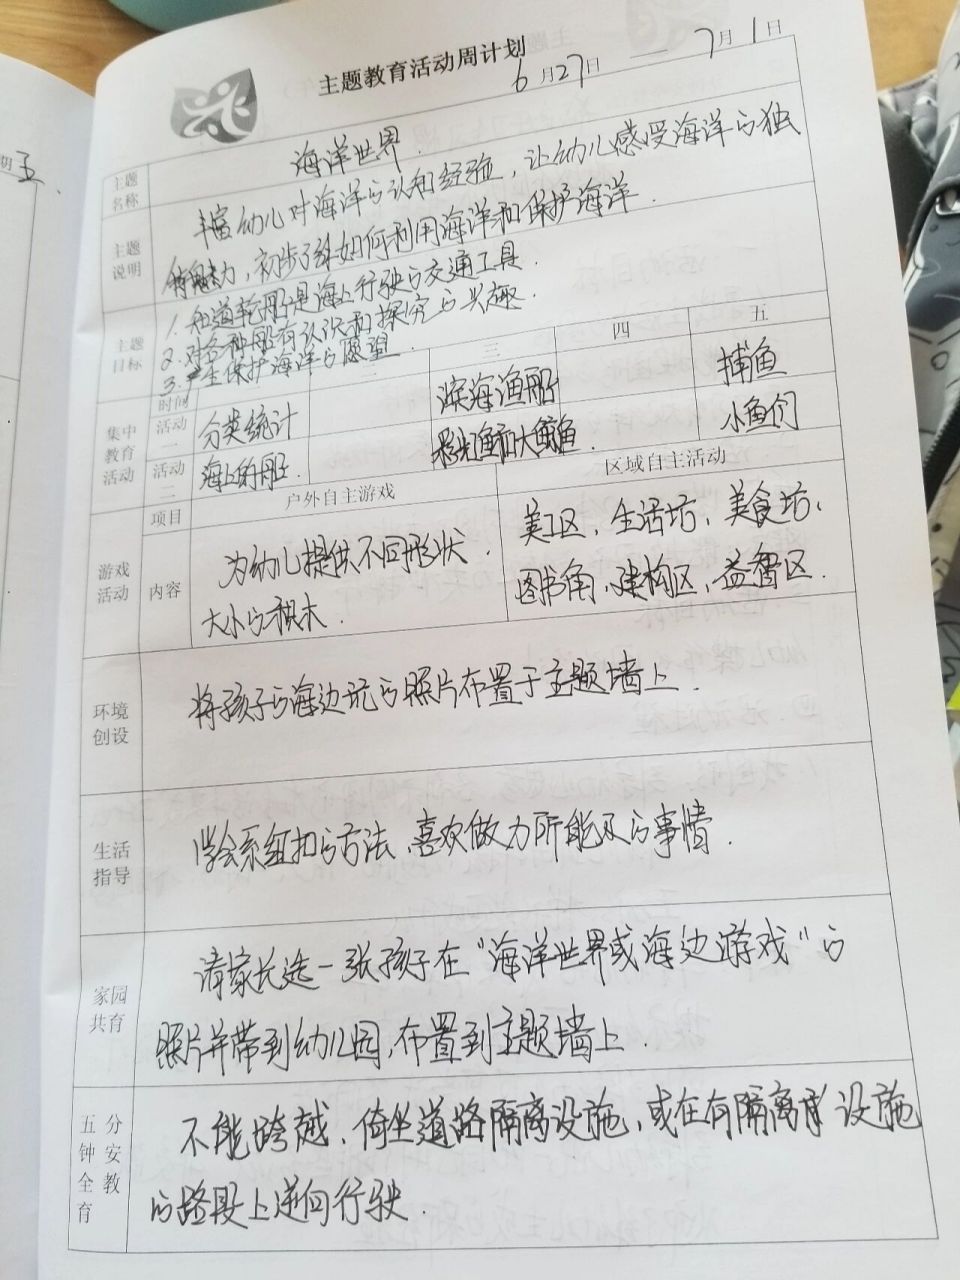 主题教育活动周计划
6月27日 — 7月1日
主题名称 海洋世界.
主题说明 丰富幼儿对海洋的认知经验,让幼儿感受海洋的独
特魅力,初步了解如何利用海洋和保护海洋.
主题目标 1.知道轮船是海上行驶的交通工具.
2.对各种船有认识和探究的兴趣.
3.产生保护海洋的愿望.
集中教育活动
时间 二 三 四 五
活动一 分类统计 滨海渔船 捕鱼
活动二 海上的船. 大鲸鱼. 小鱼们
游戏活动
项目 户外自主游戏 区域自主活动
内容 为幼儿提供不同形状.
大小的积木.
美工区、生活坊、美食坊、
图书角、建构区、益智区.
环境创设 将孩子的海边玩的照片布置于主题墙上.
生活指导 学会系纽扣的方法、喜欢做力所能及的事情.
家园共育 请家长选一张孩子在“海洋世界或海边游戏”的
照片并带到幼儿园,布置到主题墙上.
五分钟安全教育 不能跨越、倚坐道路隔离设施,或在有隔离设施
的路段上逆向行驶.
期五.